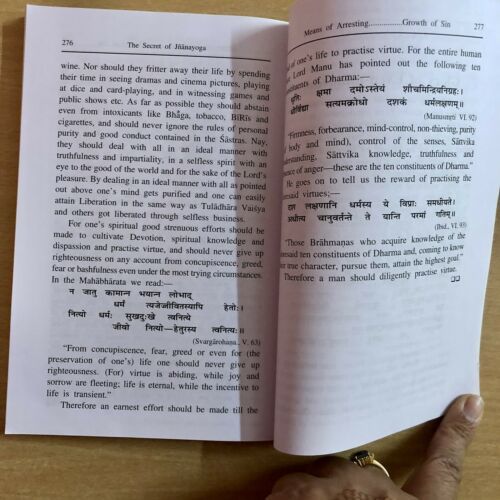 276 The Secret of Jñānayoga
wine. Nor should they fritter away their life by spending
their time in seeing dramas and cinema pictures, playing
at dice and card-playing, and in witnessing games and
public shows etc. As far as possible they should abstain
even from intoxicants like Bhāga, tobacco, BiRis and
cigarettes, and should never ignore the rules of personal
purity and good conduct contained in the Śāstras. Nay,
they should deal with all in an ideal manner with
truthfulness and impartiality, in a selfless spirit with an
eye to the good of the world and for the sake of the Lord's
pleasure. By dealing in an ideal manner with all as pointed
out above one's mind gets purified and one can easily
attain Liberation in the same way as Tulādhāra Vaiśya
and others got liberated through selfless business.
For one's spiritual good strenuous efforts should be
made to cultivate Devotion, spiritual knowledge and
dispassion and practise virtue, and should never give up
righteousness on any account from concupiscence, greed,
fear or bashfulness even under the most trying circumstances.
In the Mahābhārata we read:—
न जातु कामान्न भयान्न लोभाद्
धर्मं त्यजेज्जीवितस्यापि हेतोः।
नित्यो धर्मः सुखदुःखे त्वनित्ये
जीवो नित्यो—हेतुरस्य त्वनित्यः॥
(Svargārohaṇa., V. 63)
"From concupiscence, fear, greed or even for (the
preservation of one's) life one should never give up
righteousness. (For) virtue is abiding, while joy and
sorrow are fleeting; life is eternal, while the incentive to
life is transient."
Therefore an earnest effort should be made till the
Means of Arresting................Growth of Sin 277
of one's life to practise virtue. For the entire human
Lord Manu has pointed out the following ten
constituents of Dharma:—
धृतिः क्षमा दमोऽस्तेयं शौचमिन्द्रियनिग्रहः।
धीर्विद्या सत्यमक्रोधो दशकं धर्मलक्षणम्॥
(Manusmṛti VI. 92)
"Firmness, forbearance, mind-control, non-thieving, purity
(of body and mind), control of the senses, Sāttvika
understanding, Sāttvika knowledge, truthfulness and
absence of anger—these are the ten constituents of Dharma."
He goes on to tell us the reward of practising the
aforesaid virtues:—
दश लक्षणानि धर्मस्य ये विप्राः समधीयते।
अधीत्य चानुवर्तन्ते ते यान्ति परमां गतिम्॥
(Ibid., VI. 93)
"Those Brāhmaṇas who acquire knowledge of the
aforesaid ten constituents of Dharma and, coming to know
their true character, pursue them, attain the highest goal."
Therefore a man should diligently practise virtue.